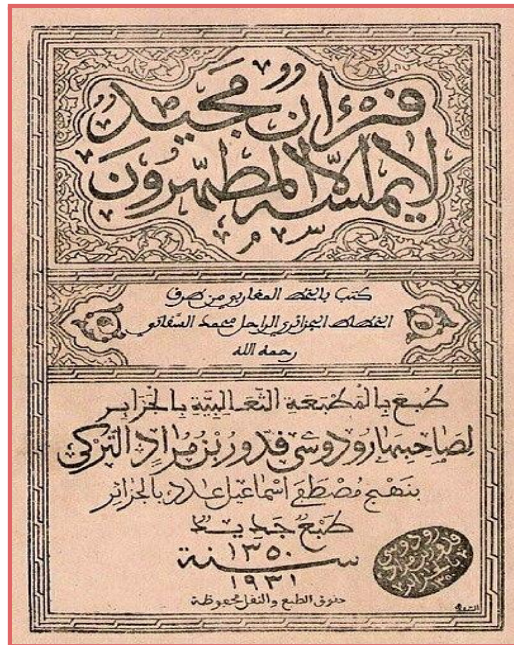 قرءان مجيد
لا يمسه إلا المطهرون
كتب بالخط المغاربي من طرف
الخطاط الجزائري الراحل محمد السفاتي
رحمه الله
طبع بالمطبعة الثعالبية بالجزاير
لصاحبها رودوسي قدور بن مراد التركي
بنهج مصطفى اسماعيل عدد بالجزائر
طبع جديد
١٣٥٠
سنة
١٩٣١
حقوق الطبع والنقل محفوظة